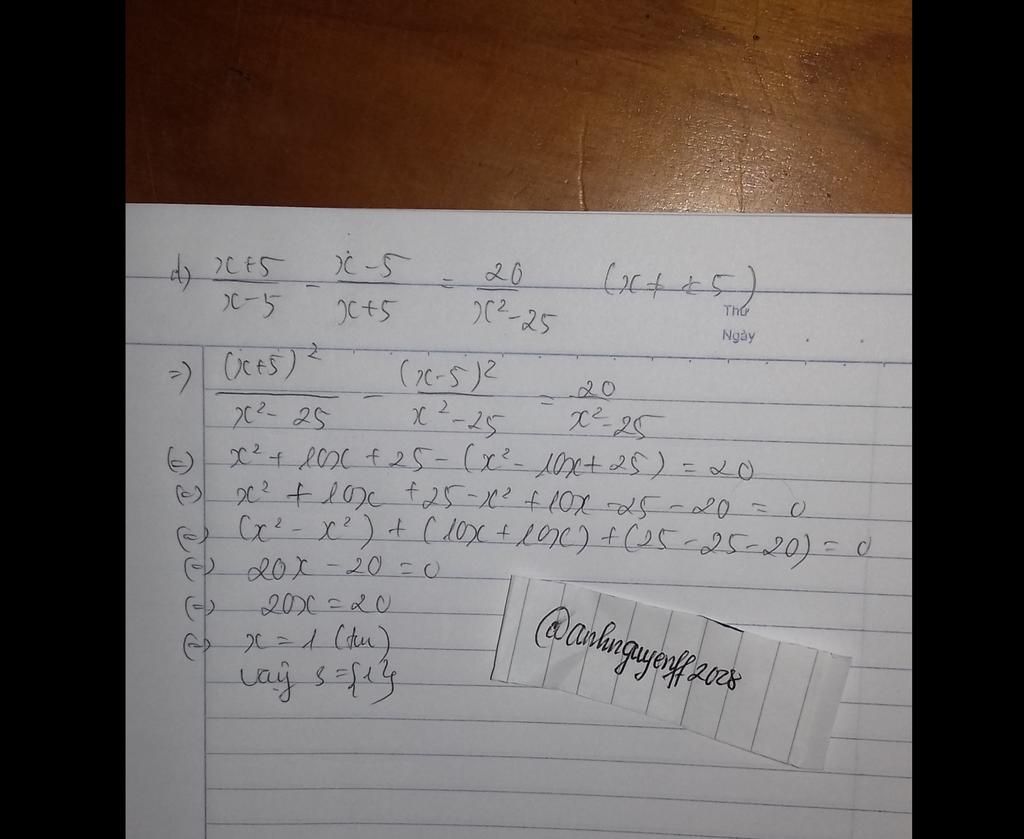 d) x+5/x-5 - x-5/x+5 = 20/x²-25 (x ≠ ±5)
Thứ
Ngày
=) (x+5)²/x²-25 - (x-5)²/x²-25 = 20/x²-25
(=) x² + 10x + 25 - (x² - 10x + 25) = 20
(=) x² + 10x + 25 - x² + 10x - 25 - 20 = 0
(=) (x² - x²) + (10x + 10x) + (25 - 25 - 20) = 0
(=) 20x - 20 = 0
(=) 20x = 20
(=) x = 1 (tm)
vậy s = {1}
@anhnguyenff2028